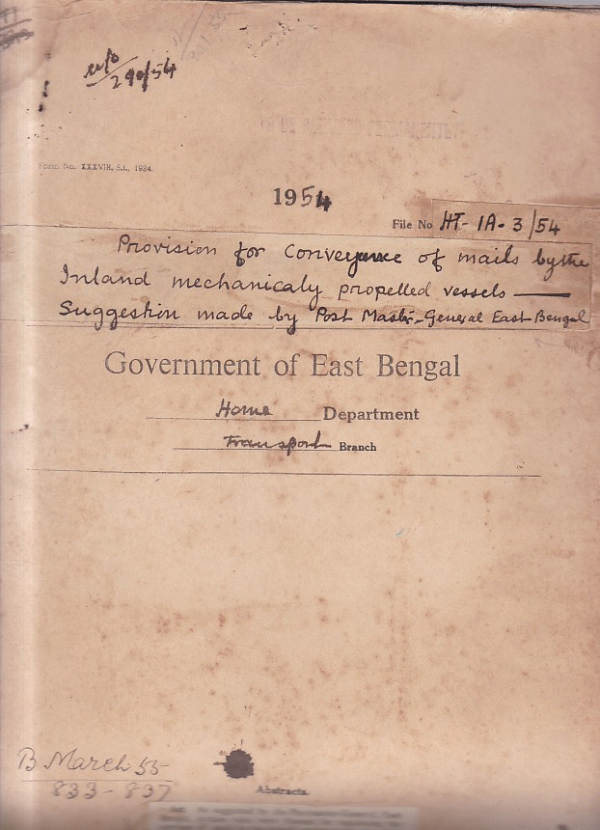 290/54
Form No. XXXVIII, S.I., 1924.
1954
File No HT-1A-3/54
Provision for Conveyance of mails by the
Inland mechanicaly propelled vessels —
Suggestion made by Post Mastr-General East Bengal
Government of East Bengal
Home Department
Transport Branch
B March 55
833-837
Abstracts.